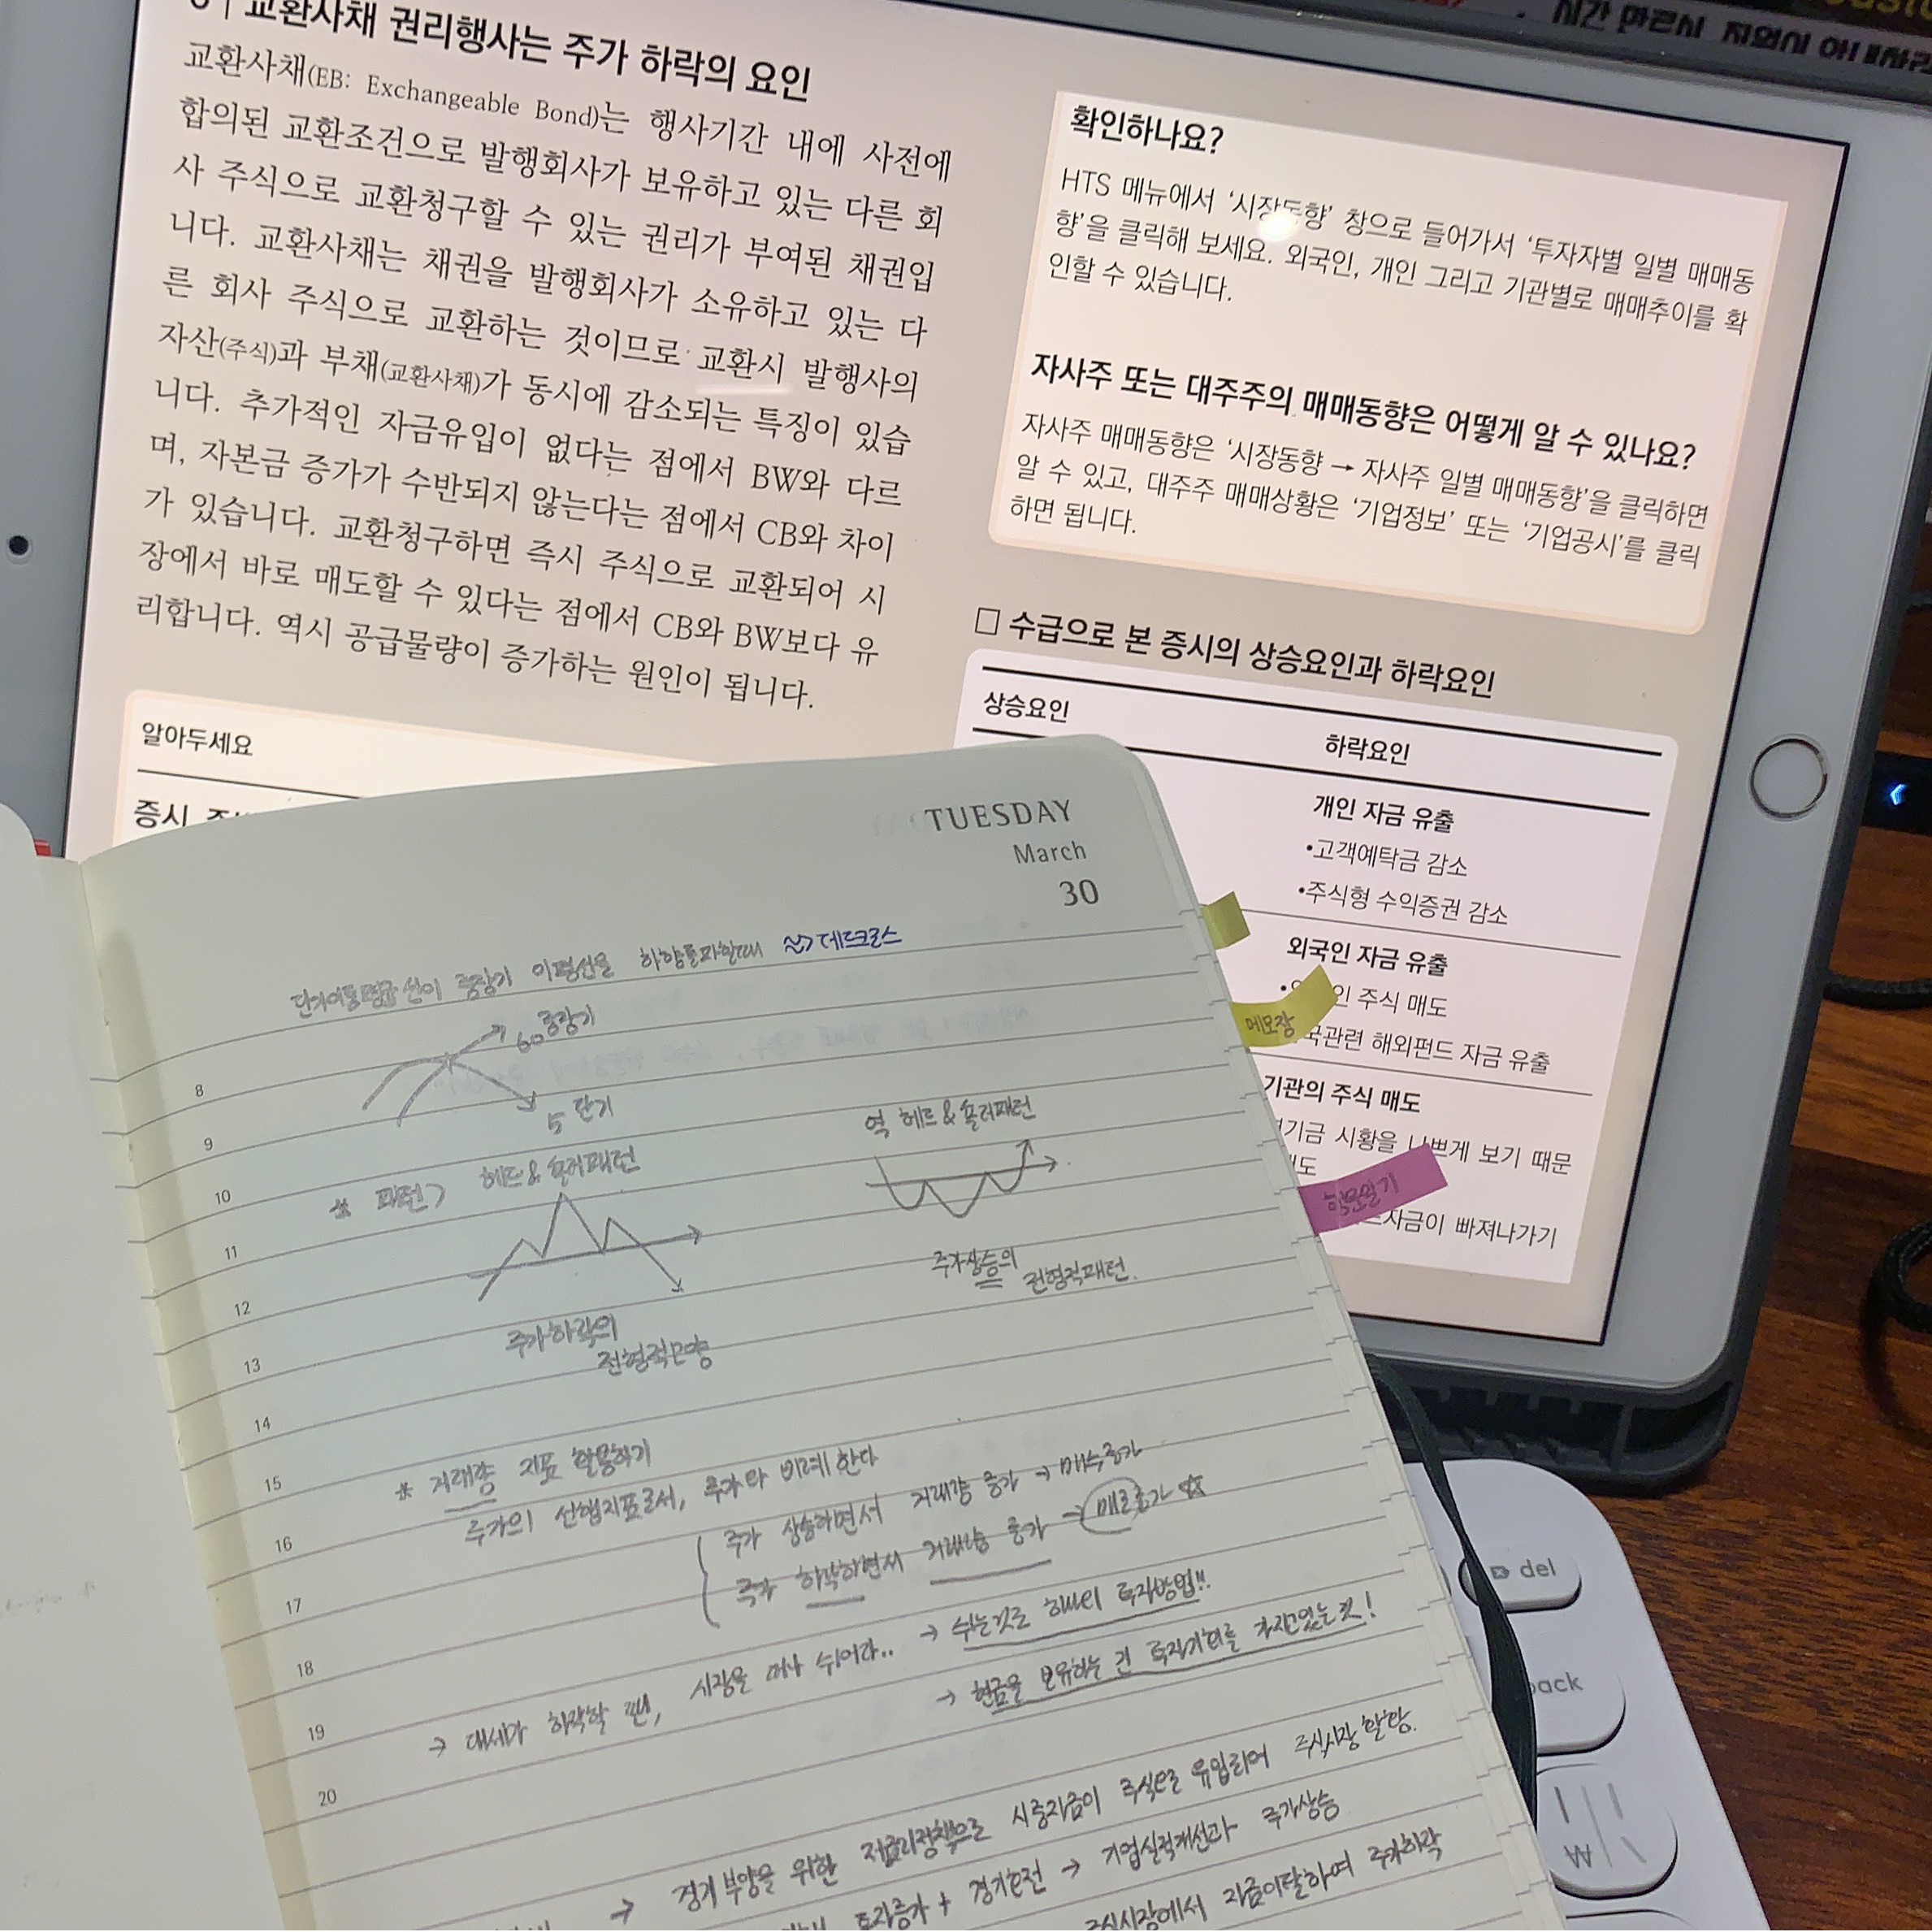 교환사채 권리행사는 주가 하락의 요인
교환사채(EB: Exchangeable Bond)는 행사기간 내에 사전에
합의된 교환조건으로 발행회사가 보유하고 있는 다른 회
사 주식으로 교환청구할 수 있는 권리가 부여된 채권입
니다. 교환사채는 채권을 발행회사가 소유하고 있는 다
른 회사 주식으로 교환하는 것이므로 교환시 발행사의
자산(주식)과 부채(교환사채)가 동시에 감소되는 특징이 있습
니다. 추가적인 자금유입이 없다는 점에서 BW와 다르
며, 자본금 증가가 수반되지 않는다는 점에서 CB와 차이
가 있습니다. 교환청구하면 즉시 주식으로 교환되어 시
장에서 바로 매도할 수 있다는 점에서 CB와 BW보다 유
리합니다. 역시 공급물량이 증가하는 원인이 됩니다.
알아두세요
증시
확인하나요?
HTS 메뉴에서 ‘시장동향’ 창으로 들어가서 ‘투자자별 일별 매매동
향’을 클릭해 보세요. 외국인, 개인 그리고 기관별로 매매추이를 확
인할 수 있습니다.
자사주 또는 대주주의 매매동향은 어떻게 알 수 있나요?
자사주 매매동향은 ‘시장동향 → 자사주 일별 매매동향’을 클릭하면
알 수 있고, 대주주 매매상황은 ‘기업정보’ 또는 ‘기업공시’를 클릭
하면 됩니다.
□ 수급으로 본 증시의 상승요인과 하락요인
상승요인
하락요인
개인 자금 유출
•고객예탁금 감소
•주식형 수익증권 감소
외국인 자금 유출
주식 매도
해외펀드 자금 유출
기관의 주식 매도
시황을 나쁘게 보기 때문
빠져나가기
메모장
TUESDAY
March
30
단기이동평균선이 중장기 이평선을 하향돌파할때 ~> 데드크로스
60 중장기
5 단기
8
9
10
11
12
13
14
15
16
17
18
19
20
* 패턴> 헤드&숄더패턴
역 헤드&숄더패턴
주가하락의
전형적모양
주가상승의
전형적패턴.
* 거래량 지표 활용하기
주가의 선행지표로서, 주가와 비례한다
주가 상승하면서 거래량 증가 → 매수증가
주가 하락하면서 거래량 증가 → 매도증가 ☆
→ 대세가 하락할 땐, 시장을 떠나 쉬어라.. → 쉬는것도 하나의 투자방법!!
→ 현금을 보유하는 건 투자기회를 가지고있는것!
→ 경기부양을 위한 저금리정책으로 시중자금이 주식으로 유입되어 주식시장 활황.
투자증가 + 경기호전 → 기업실적개선과 주가상승
주식시장에서 자금이탈하여 주가하락
del
back
₩